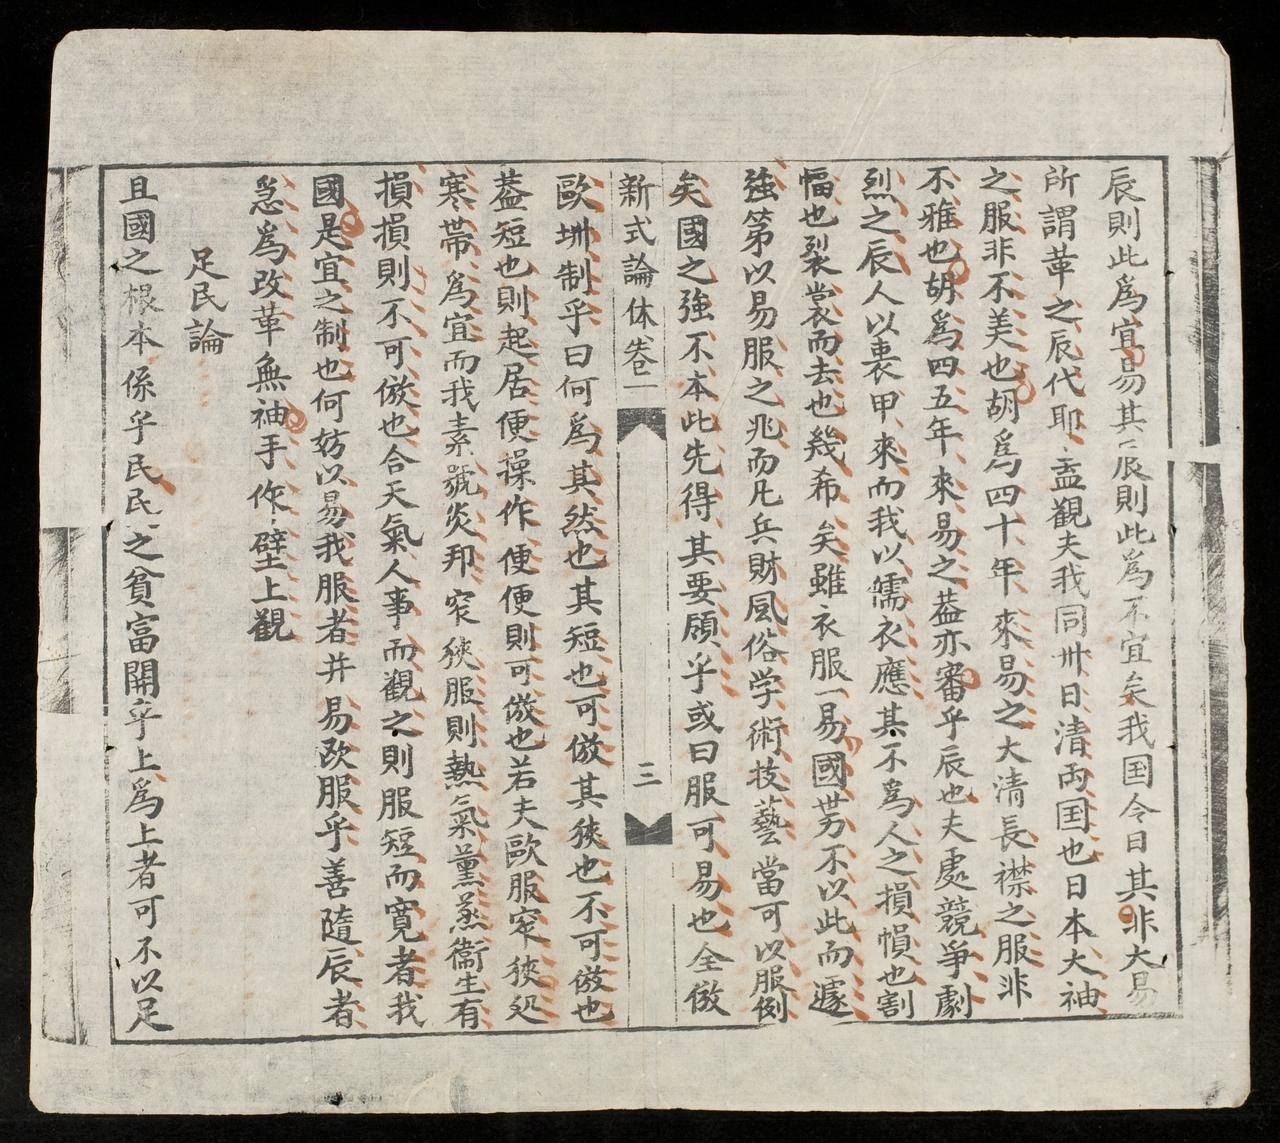 辰則此爲宜易其辰則此爲不宜矣我国今日其非大易
所謂革之辰代耶盍觀夫我同卅日清両国也日本大袖
之服非不美也胡爲四十年來易之大清長襟之服非
不雅也胡爲四五年來易之葢亦審乎辰也夫處競爭劇
烈之辰人以裹甲來而我以襦衣應其不爲人之損幁也割
幅也裂裳而去也幾希矣雖衣服一易國势不以此而遽
強第以易服之兆而凡兵財風俗学術技藝當可以服例
矣國之強不本此先得其要頋乎或曰服可易也全倣
新式論体卷一
三
歐洲制乎曰何爲其然也其短也可倣其狹也不可倣也
葢短也則起居便操作便便則可倣也若夫歐服窄狹処
寒帶爲宜而我素號炎邦窄狹服則熱氣薰蒸衞生有
損損則不可倣也合天氣人事而觀之則服短而寬者我
國是宜之制也何妨以易我服者并易欧服乎善隨辰者
急爲改革無袖手作壁上觀
足民論
且國之根本係乎民民之貧富開乎上爲上者可不以足